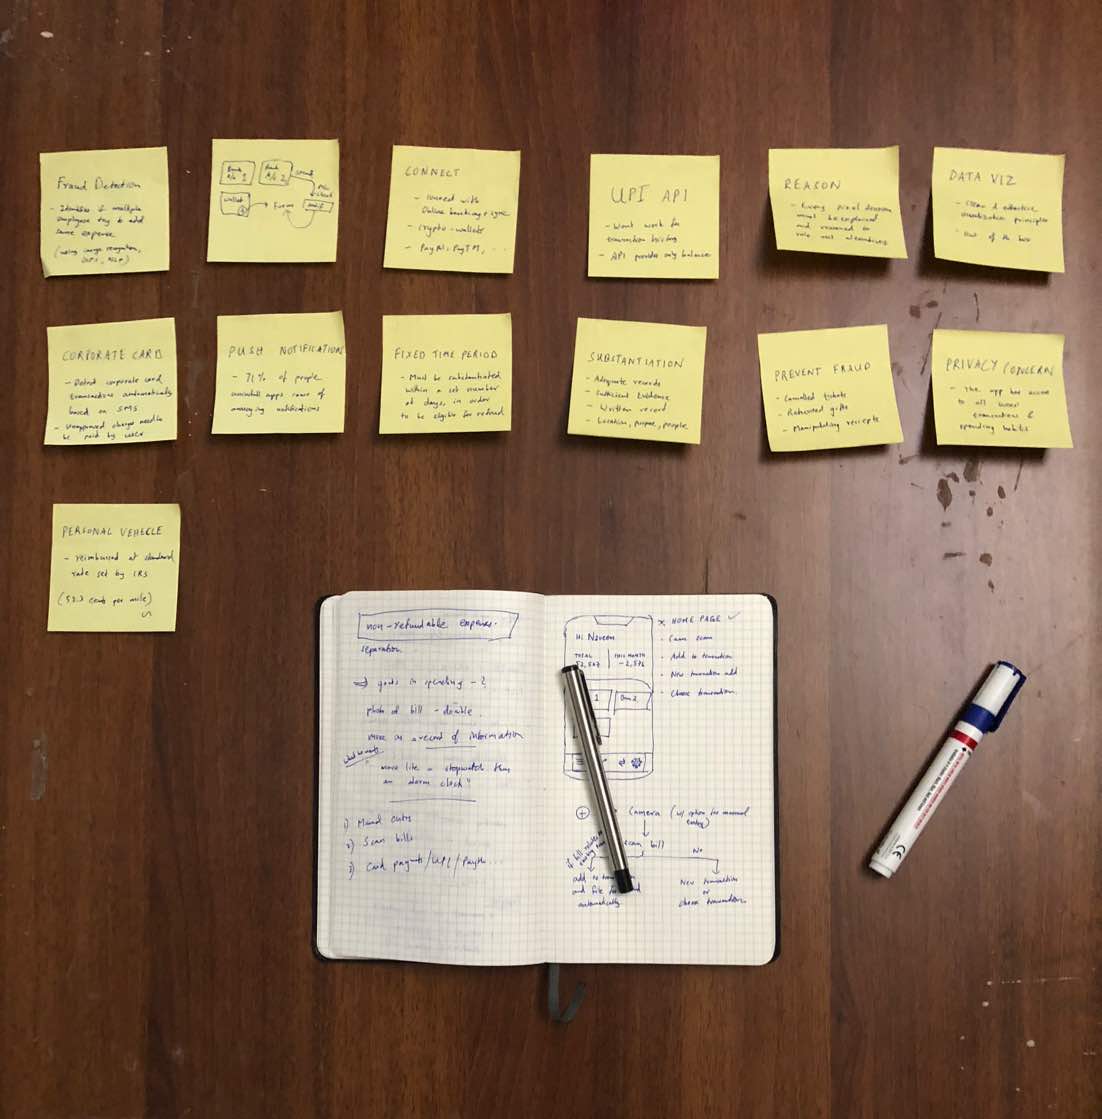 Fraud Detection
- Identifies if multiple
employees try to add
same expense
(using image recognition,
GPS, NLP)
Bank
A/c 1
Bank
A/c 2
Wallet
CONNECT
- Connect with
Online banking & sync
- Crypto-wallets
- PayPal, PayTM, ...
UPI API
- Wont work for
transaction history
- API provides only balance
REASON
- Every pixel decision
must be explained
and reasoned to
rule out alternatives
DATA VIZ
- Clean & effective
visualization principles
- Out of the box
CORPORATE CARD
- Detect corporate card
transactions automatically
based on SMS
- Unapproved charges need to
be paid by user
PUSH NOTIFICATION
- 71% of people
uninstall apps cause of
annoying notifications
FIXED TIME PERIOD
- Must be substantiated
within a set number
of days, in order
to be eligible for refund
SUBSTANTIATION
- Adequate records
- Sufficient Evidence
- Written record
- Location, purpose, people
PREVENT FRAUD
- Cancelled tickets
- Returned gifts
- Manipulating receipts
PRIVACY CONCERN
- The app has access
to all user
transactions &
spending habits
PERSONAL VEHICLE
- reimbursed at standard
rate set by IRS
(53.5 cents per mile)
non-refundable expense
separation
goals in spending - ?
photo of bill - doable.
more as a record of information
"more like a stopwatch than
an alarm clock"
1) Manual entry
2) Scan bills
3) Card payments/UPI/Paytm...
Hi Naveen
TOTAL
52,507
THIS MONTH
-2,572
1
2
HOME PAGE ✓
Add to transaction
New transaction add
Choose transaction
+
Camera (w/ option for manual
entry)
scan bill
No
add to
and file
automatically
New transaction
or
choose transaction
CE